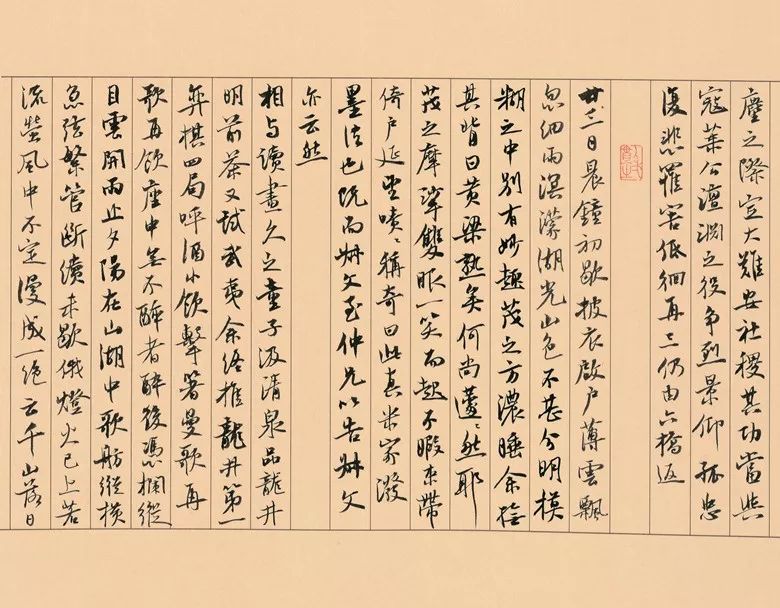 塵之際定大難安社稷其功當與
寇萊公澶淵之役爭烈景仰孤忠
復悲罹害低徊再三仍由六橋返
廿三日晨鐘初歇披衣啟戶薄雲飄
忽細雨溟濛湖光山色不甚分明模
糊之中別有妙趣茂之方濃睡余捻
其背曰黃粱熟矣何尚蘧蘧然耶
茂之摩挲雙眼一笑而起不暇束帶
倚戶延望嘖嘖稱奇曰此真米家潑
墨法也既而妹文至仲兄以告妹文
亦云然
相与讀畫久之童子汲清泉品龍井
明前茶又試武夷余終推龍井第一
弈棋四局呼酒小飲擊箸曼歌再
歌再飲座中無不醉者醉後憑欄縱
目雲開雨止夕陽在山湖中歌舫縱横
急弦繁管斷續未歇俄燈火已上若
流螢風中不定漫成一絕云千山落日